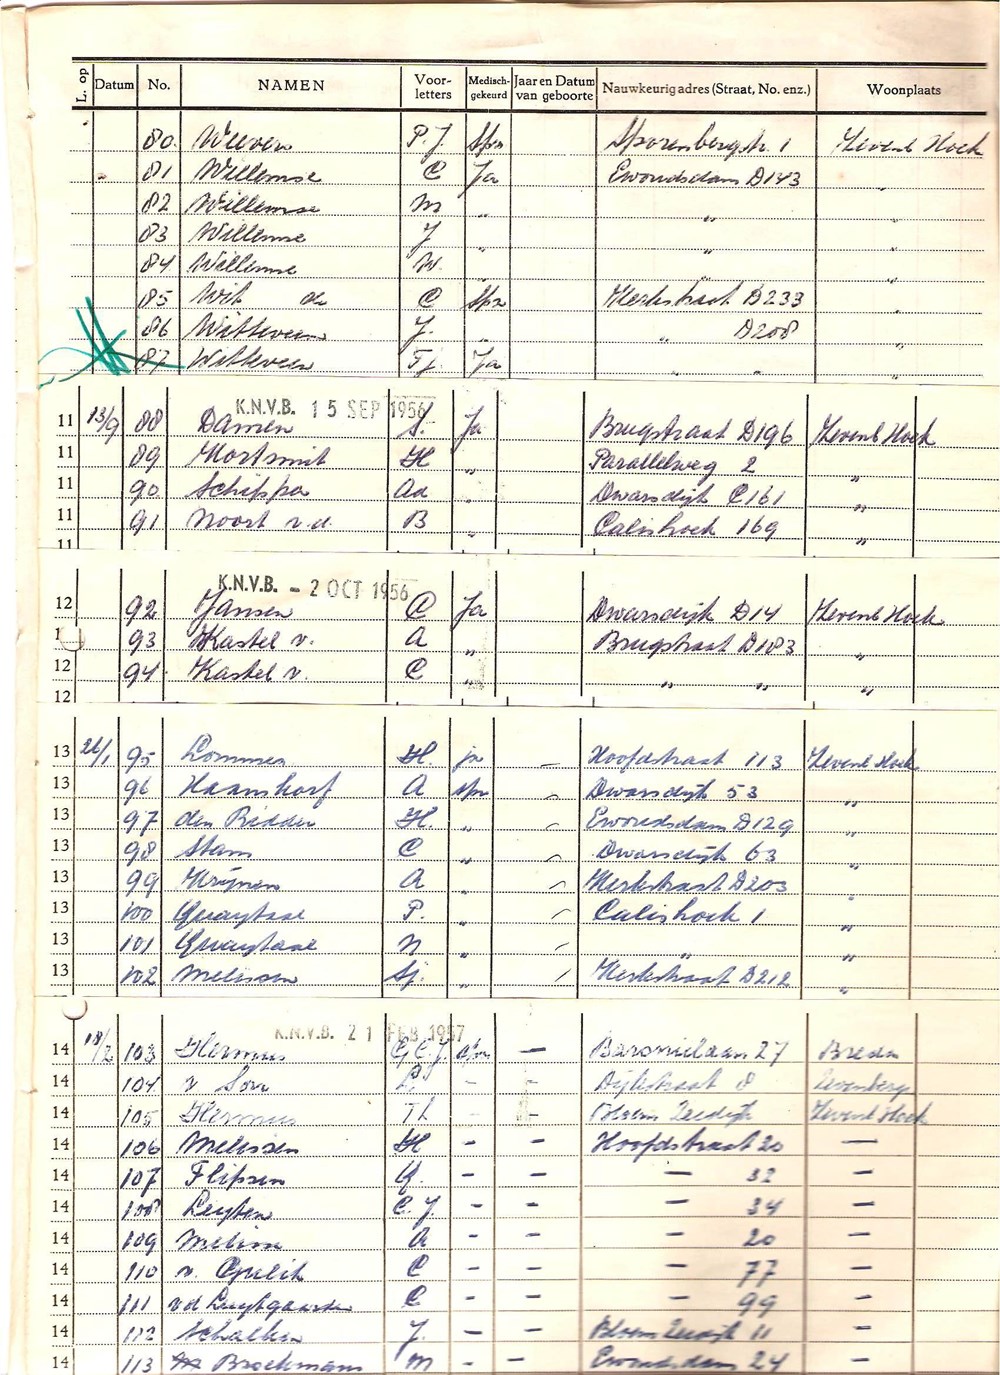 L. op Datum No. NAMEN Voor-letters Medisch-gekeurd Jaar en Datum van geboorte Nauwkeurig adres (Straat, No. enz.) Woonplaats
80 P. J. Spr 1 Zevenb Hoek
81 Willemse C Ja Ewoudsdam D143 "
82 Willemse M " " "
83 Willemse J " " "
84 Willemse W.
85 Wit de C Spr Kerkstraat D233
86 Witteveen J. " " D208 "
87 Witteveen Fj. Ja " " "
K.N.V.B. 15 SEP 1956
11 13/9 88 Damen J. Ja Brugstraat D196 Zevenb Hoek
11 89 H " Parallelweg 2 "
11 90 Schippa Ad " Dwarsdijk C161 "
11 91 Noort v.d. B " Calishoek 169 "
11
K.N.V.B. - 2 OCT 1956
12 92 Jansen C Ja Dwarsdijk D14 Zevenb Hoek
93 Kastel v. A " Brugstraat D183 "
12 94 Kastel v. C " " " "
12
13 26/1 95 Lommen H. ja Hoofdstraat 113 Zevenb Hoek
13 96 A spr Dwarsdijk 53 "
13 97 den Ridder H. " Ewoudsdam D129 "
13 98 Stam C " Dwarsdijk 63 "
13 99 Krijnen A " Kerkstraat D203 "
13 100 Quaytaal P. " Calishoek 1 "
13 101 Quaytaal N " " "
13 102 Melissen Sj. " Kerkstraat D212 "
K.N.V.B. 21 FEB 1957
14 18/2 103 Hermus G C J spr — 27 Breda
14 104 v Son - - Dijkstraat 8 Zevenbergen
14 105 Hermus Th - - Bloem Zeedijk Zevenb Hoek
14 106 Melissen H - - Hoofdstraat 20 —
14 107 Flipsen - - — 32 —
14 108 Leyten C. J. - - — 34 —
14 109 A - - — 20 —
14 110 v. Gulik C - - — 77 —
14 111 vd Luytgaarden C - - — 99 —
14 112 Schalken J. - - Bloem Zeedijk 11 —
14 113 Broekmans M - - Ewoudsdam 24 —